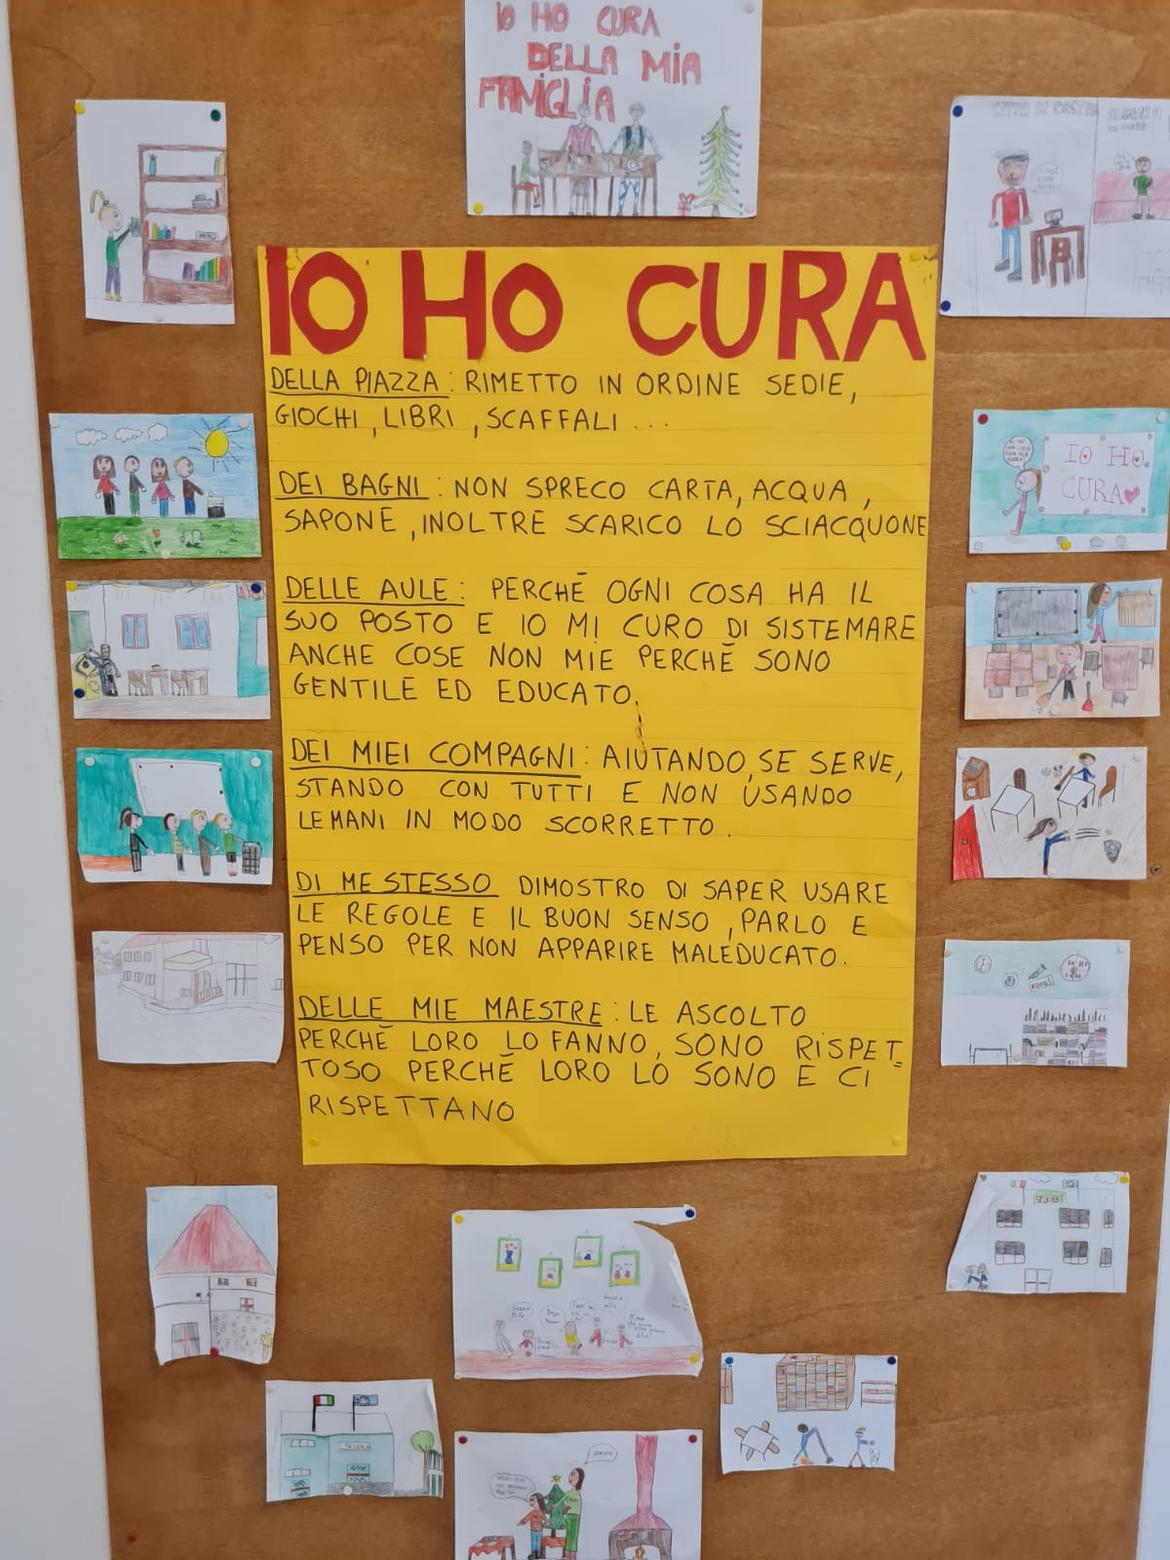 IO HO CURA
DELLA MIA
FAMIGLIA
IO HO CURA
DELLA PIAZZA : RIMETTO IN ORDINE SEDIE,
GIOCHI, LIBRI, SCAFFALI ...
DEI BAGNI : NON SPRECO CARTA, ACQUA,
SAPONE, INOLTRE SCARICO LO SCIACQUONE
DELLE AULE : PERCHÉ OGNI COSA HA IL
SUO POSTO E IO MI CURO DI SISTEMARE
ANCHE COSE NON MIE PERCHÉ SONO
GENTILE ED EDUCATO.
DEI MIEI COMPAGNI : AIUTANDO, SE SERVE,
STANDO CON TUTTI E NON USANDO
LE MANI IN MODO SCORRETTO.
DI ME STESSO DIMOSTRO DI SAPER USARE
LE REGOLE E IL BUON SENSO, PARLO E
PENSO PER NON APPARIRE MALEDUCATO.
DELLE MIE MAESTRE : LE ASCOLTO
PERCHÉ LORO LO FANNO, SONO RISPET=
TOSO PERCHÉ LORO LO SONO E CI
RISPETTANO
IO HO
CURA
SCUOLA